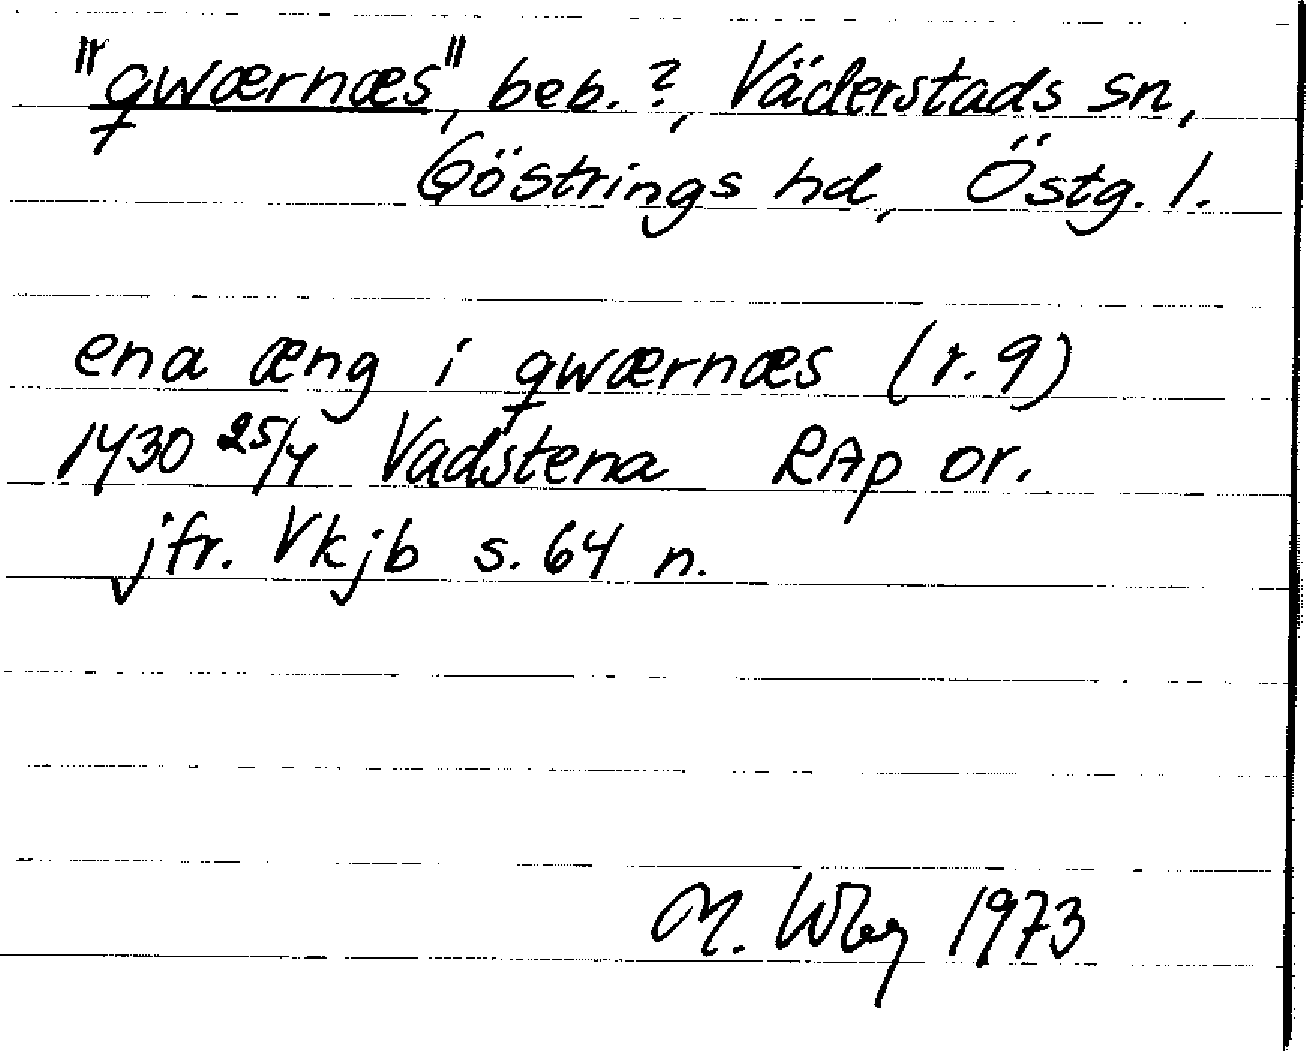 "qwærnæs", beb. ?, Väderstads sn,
Göstrings hd, Östg. l.
ena æng i qwærnæs (r. 9)
1430 25/4 Vadstena RAp or.
jfr. Vkjb s. 64 n.
M. Wbg 1973